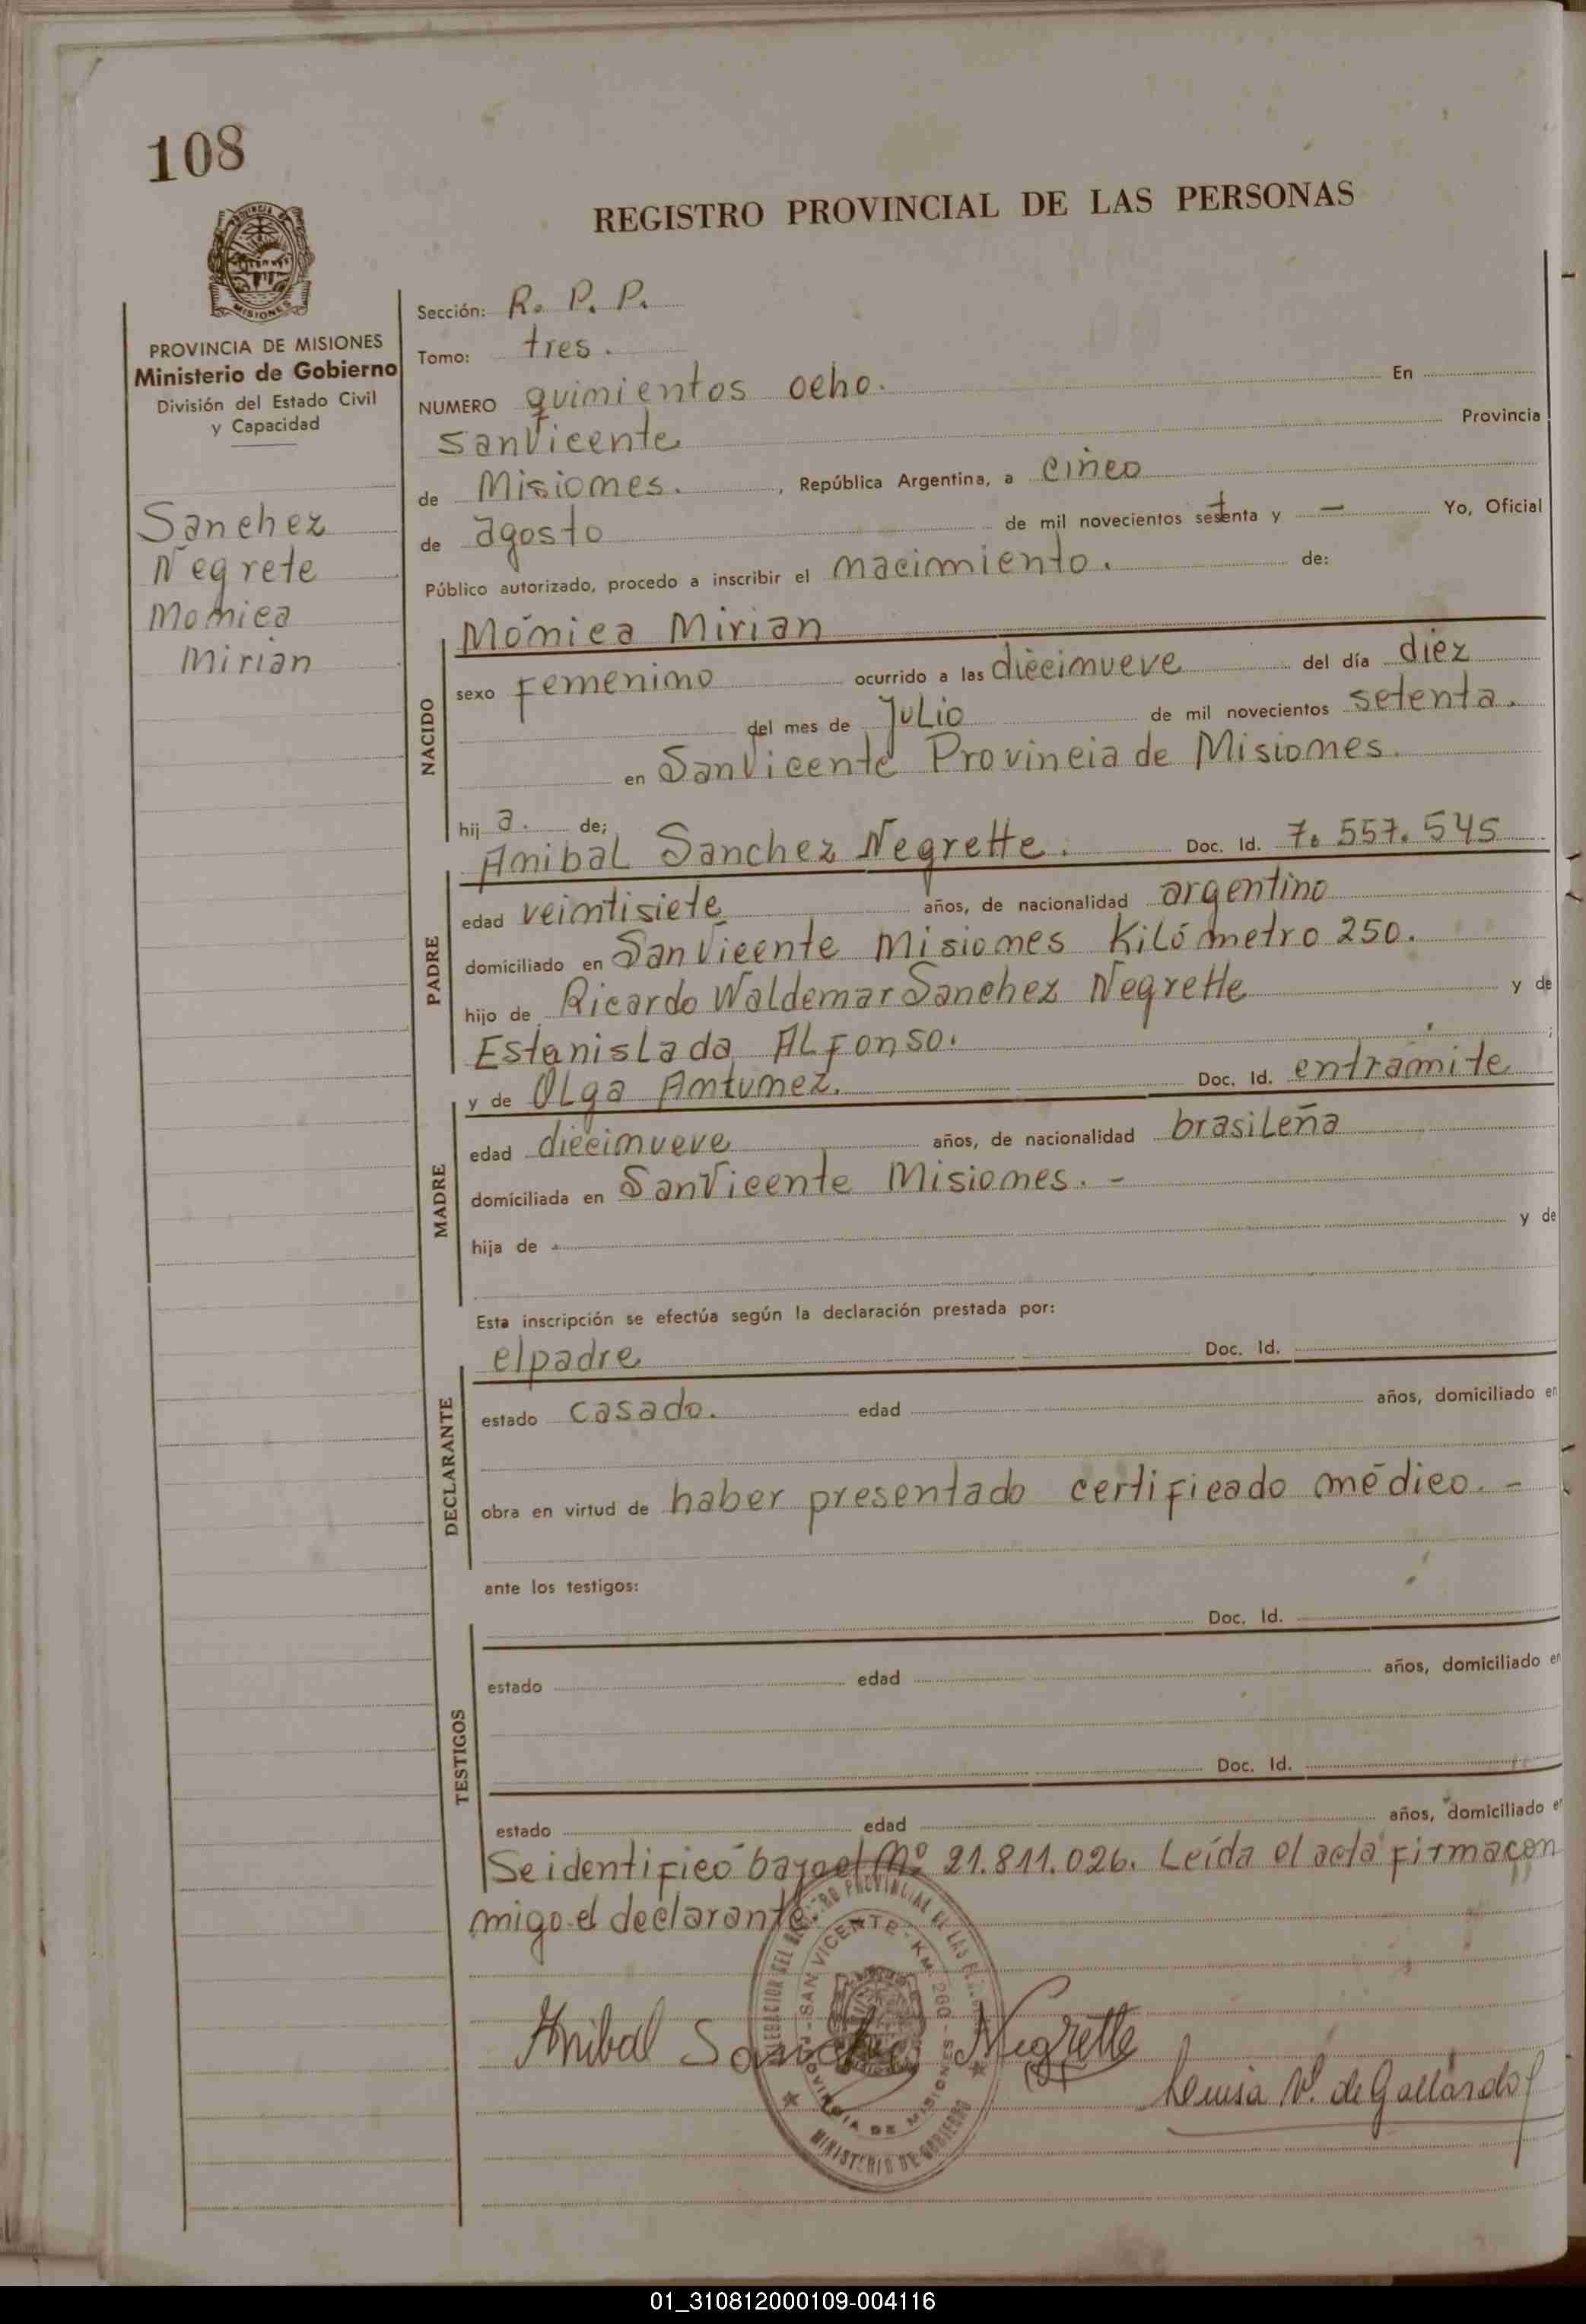 108
REGISTRO PROVINCIAL DE LAS PERSONAS
MISIONES
PROVINCIA DE MISIONES
Ministerio de Gobierno
División del Estado Civil
y Capacidad
Sanchez
Negrete
Monica
Mirian
Sección: R. P. P.
Tomo: tres.
NUMERO quinientos ocho. En
San Vicente Provincia
de Misiones. , República Argentina, a cinco
de agosto de mil novecientos setenta y — Yo, Oficial
Público autorizado, procedo a inscribir el nacimiento. de:
NACIDO
Mónica Mirian
sexo Femenino ocurrido a las diecinueve del día diez
del mes de Julio de mil novecientos setenta.
en San Vicente Provincia de Misiones.
hij a. de;
PADRE
Anibal Sanchez Negrette. Doc. Id. 7.557.545
edad veintisiete años, de nacionalidad argentino
domiciliado en San Vicente Misiones Kilómetro 250.
hijo de Ricardo Waldemar Sanchez Negrette y de
Estanislada Alfonso. ;
MADRE
y de Olga Antunez. Doc. Id. entramite
edad diecinueve años, de nacionalidad brasileña
domiciliada en San Vicente Misiones. -
hija de y de
Esta inscripción se efectúa según la declaración prestada por:
DECLARANTE
el padre Doc. Id.
estado casado. edad años, domiciliado en
obra en virtud de haber presentado certificado médico. -
ante los testigos:
TESTIGOS
Doc. Id.
estado edad años, domiciliado en
Doc. Id.
estado edad años, domiciliado en
Se identificó bajo el Nº 21.811.026. Leída el acta firma con
migo el declarante.
DEL REGISTRO PROVINCIAL DE LAS
SAN VICENTE - KM 260 - PROVINCIA DE MISIONES
MINISTERIO DE GOBIERNO
Anibal Sanchez Negrette
Luisa V. de Gallardo
01_310812000109-004116